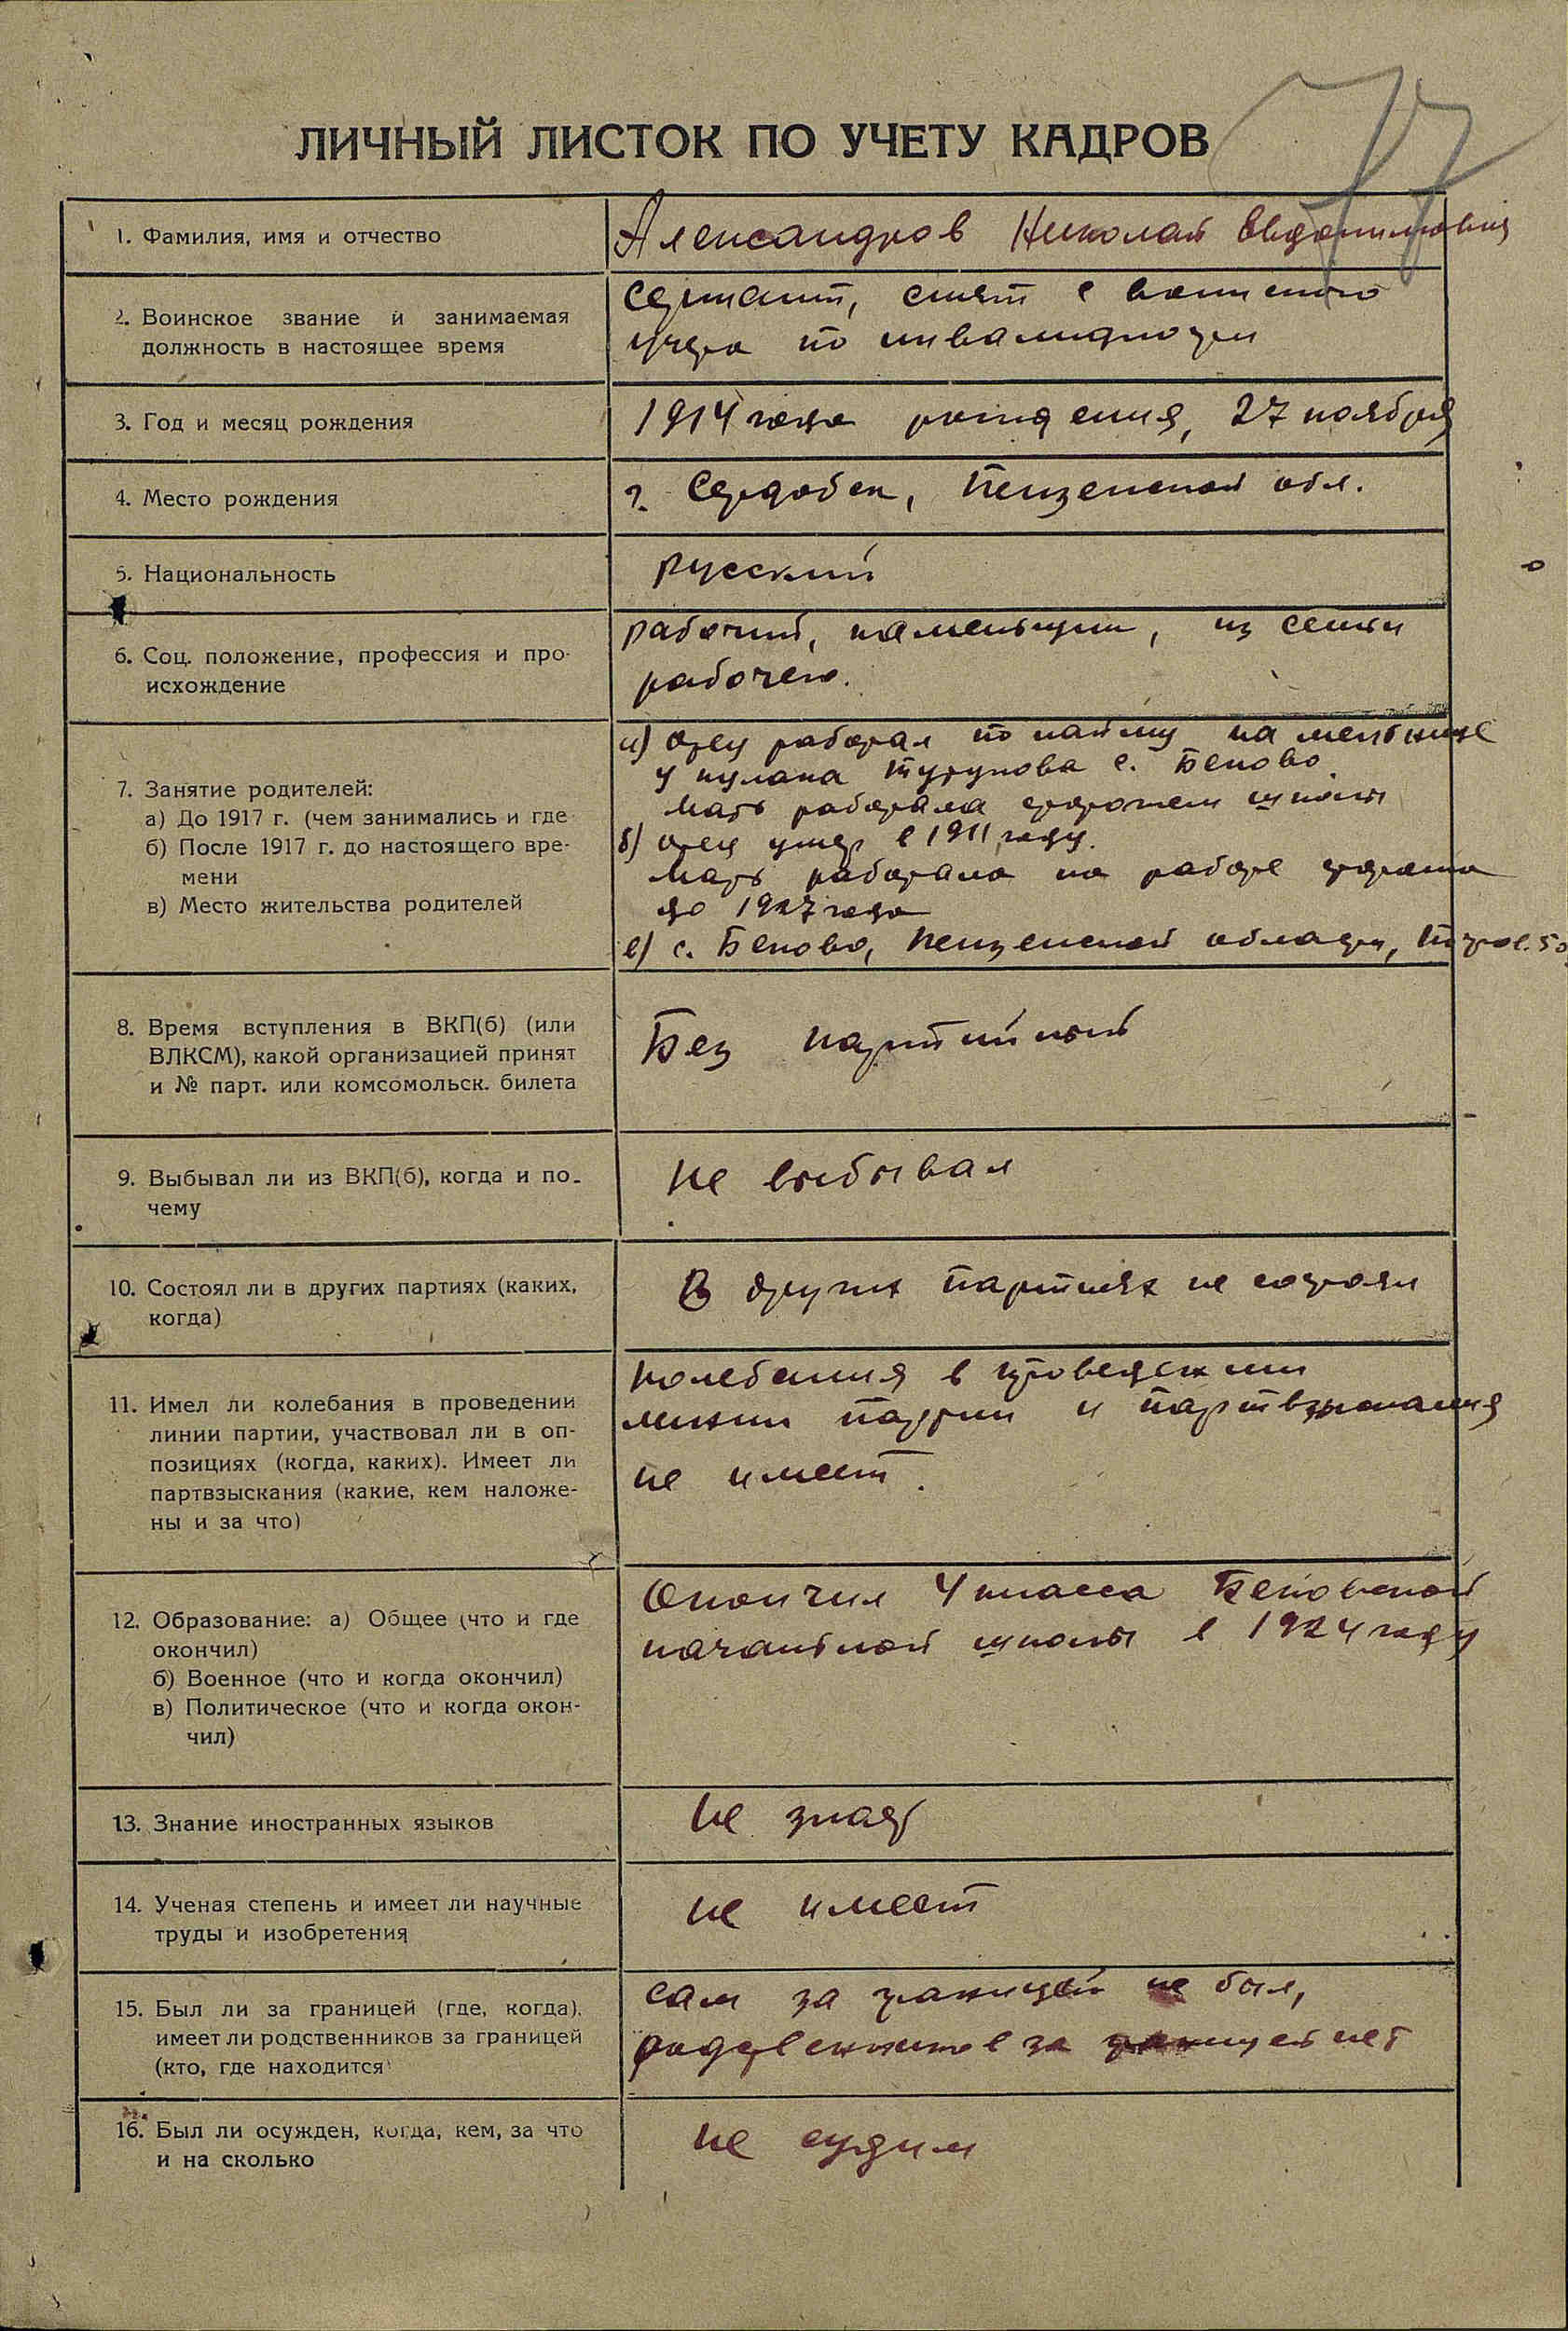 ЛИЧНЫЙ ЛИСТОК ПО УЧЕТУ КАДРОВ
77
1. Фамилия, имя и отчество
Александров Николай
2. Воинское звание и занимаемая
должность в настоящее время
Сержант, снят с воинского
учета по инвалидности
3. Год и месяц рождения
1914 года рождения, 27 ноября
4. Место рождения
г. Сердобск, Пензенской обл.
5. Национальность
русский
6. Соц. положение, профессия и про-
исхождение
рабочий, каменьщик, из семьи
рабочего.
7. Занятие родителей:
а) До 1917 г. (чем занимались и где
б) После 1917 г. до настоящего вре-
мени
в) Место жительства родителей
а) отец работал по найму на мельнице
у кулака с. Беково.
Мать работала сторожем школы
б) отец умер в 1911 году.
Мать работала на работе сторожа
до 1927 года
в) с. Беково, Пензенской области,
8. Время вступления в ВКП(б) (или
ВЛКСМ), какой организацией принят
и № парт. или комсомольск. билета
Без партийный
9. Выбывал ли из ВКП(б), когда и по-
чему
Не выбывал
10. Состоял ли в других партиях (каких,
когда)
В других партиях не состоял
11. Имел ли колебания в проведении
линии партии, участвовал ли в оп-
позициях (когда, каких). Имеет ли
партвзыскания (какие, кем наложе-
ны и за что)
Колебания в проведении
линии партии и партвзыскания
не имеет.
12. Образование: а) Общее (что и где
окончил)
б) Военное (что и когда окончил)
в) Политическое (что и когда окон-
чил)
Окончил 4 класса Бековской
начальной школы в 1924 году
13. Знание иностранных языков
Не знает
14. Ученая степень и имеет ли научные
труды и изобретения
не имеет
15. Был ли за границей (где, когда),
имеет ли родственников за границей
(кто, где находится
сам за границей не был,
родственников за границей нет
16. Был ли осужден, когда, кем, за что
и на сколько
не судим